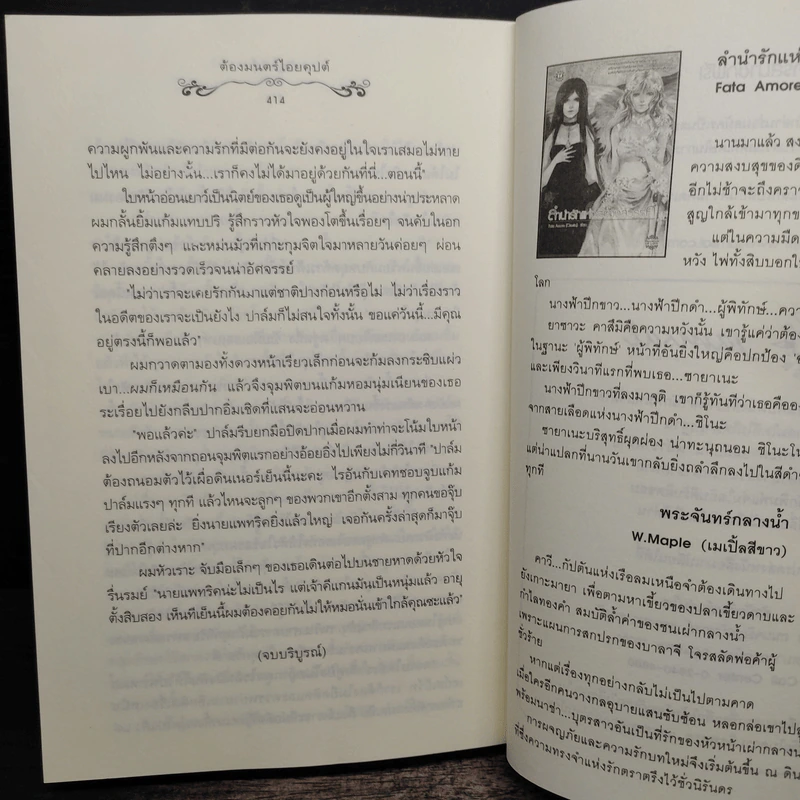 ต้องมนตร์ไอยคุปต์
414
ความผูกพันและความรักที่มีต่อกันจะยังคงอยู่ในใจเราเสมอไม่หาย
ไปไหน ไม่อย่างนั้น...เราก็คงไม่ได้มาอยู่ด้วยกันที่นี่...ตอนนี้"
ใบหน้าอ่อนเยาว์เป็นนิตย์ของเธอดูเป็นผู้ใหญ่ขึ้นอย่างน่าประหลาด
ผมกลั้นยิ้มแก้มแทบปริ รู้สึกราวหัวใจพองโตขึ้นเรื่อยๆ จนคับในอก
ความรู้สึกตึงๆ และหม่นมัวที่เกาะกุมจิตใจมาหลายวันค่อยๆ ผ่อน
คลายลงอย่างรวดเร็วจนน่าอัศจรรย์
"ไม่ว่าเราจะเคยรักกันมาแต่ชาติปางก่อนหรือไม่ ไม่ว่าเรื่องราว
ในอดีตของเราจะเป็นยังไง ปาล์มก็ไม่สนใจทั้งนั้น ขอแค่วันนี้...มีคุณ
อยู่ตรงนี้ก็พอแล้ว"
ผมกวาดตามองทั้งดวงหน้าเรียวเล็กก่อนจะก้มลงกระซิบแผ่ว
เบา...ผมก็เหมือนกัน แล้วจึงจุมพิตบนแก้มหอมนุ่มเนียนของเธอ
ระเรื่อยไปยังกลีบปากอิ่มเชิดที่แสนจะอ่อนหวาน
"พอแล้วค่ะ" ปาล์มรีบยกมือปิดปากเมื่อผมทำท่าจะโน้มใบหน้า
ลงไปอีกหลังจากถอนจุมพิตแรกอย่างอ้อยอิ่งไปเพียงไม่กี่วินาที "ปาล์ม
ต้องถนอมตัวไว้เผื่อดินเนอร์เย็นนี้นะคะ ไรอันกับเคทชอบจูบแก้ม
ปาล์มแรงๆ ทุกที แล้วไหนจะลูกๆ ของพวกเขาอีกตั้งสาม ทุกคนขอจุ๊บ
เรียงตัวเลยล่ะ ยิ่งนายแพทริคยิ่งแล้วใหญ่ เจอกันครั้งล่าสุดก็มาจุ๊บ
ที่ปากอีกต่างหาก"
ผมหัวเราะ จับมือเล็กๆ ของเธอเดินต่อไปบนชายหาดด้วยหัวใจ
รื่นรมย์ "นายแพทริคน่ะไม่เป็นไร แต่เจ้าคีแกนมันเป็นหนุ่มแล้ว อายุ
ตั้งสิบสอง เห็นทีเย็นนี้ผมต้องคอยกันไม่ให้หมอนั่นเข้าใกล้คุณซะแล้ว"
(จบบริบูรณ์)
ลำนำรักแห่
Fata Amore
นานมาแล้ว
ความสงบสุขของ
อีกไม่ช้าจะถึงครา
สูญใกล้เข้ามาทุก
แต่ในความมืด
หวัง ไฟทั้งสิบบอก
โลก
นางฟ้าปีกขาว...นางฟ้าปีกดำ...ผู้พิทักษ์...
ยาซาวะ คาสึมิคือความหวังนั้น เขารู้แค่ว่าต้อง
ในฐานะ 'ผู้พิทักษ์' หน้าที่อันยิ่งใหญ่คือปกป้อง
และเพียงวินาทีแรกที่พบเธอ...ซายาเนะ
นางฟ้าปีกขาวที่ลงมาจุติ เขาก็รู้ทันทีว่าเธอคือ
จากสายเลือดแห่งนางฟ้าปีกดำ...ชิโนะ
ซายาเนะบริสุทธิ์ผุดผ่อง น่าทะนุถนอม ชิโนะ
แต่น่าแปลกที่นานวันเขากลับยิ่งถลำลึกลงไปในสีดำ
ทุกที
พระจันทร์กลางน้ำ
W.Maple (เมเปิ้ลสีขาว)
คาวี...กัปตันแห่งเรือลมเหนือจำต้องเดินทางไป
ยังเกาะมายา เพื่อตามหาเขี้ยวของปลาเขี้ยวดาบและ
กำไลทองคำ สมบัติล้ำค่าของชนเผ่ากลางน้ำ
เพราะแผนการสกปรกของบาลาจี โจรสลัดพ่อค้าผู้
ชั่วร้าย
หากแต่เรื่องทุกอย่างกลับไม่เป็นไปตามคาด
เมื่อใครอีกคนวางกลอุบายแสนซับซ้อน หลอกล่อเขาไป
พร้อมนาช่า...บุตรสาวอันเป็นที่รักของหัวหน้าเผ่ากลาง
การผจญภัยและความรักบทใหม่จึงเริ่มต้นขึ้น ณ
ที่ซึ่งความทรงจำแห่งรักตราตรึงไว้ชั่วนิรันดร